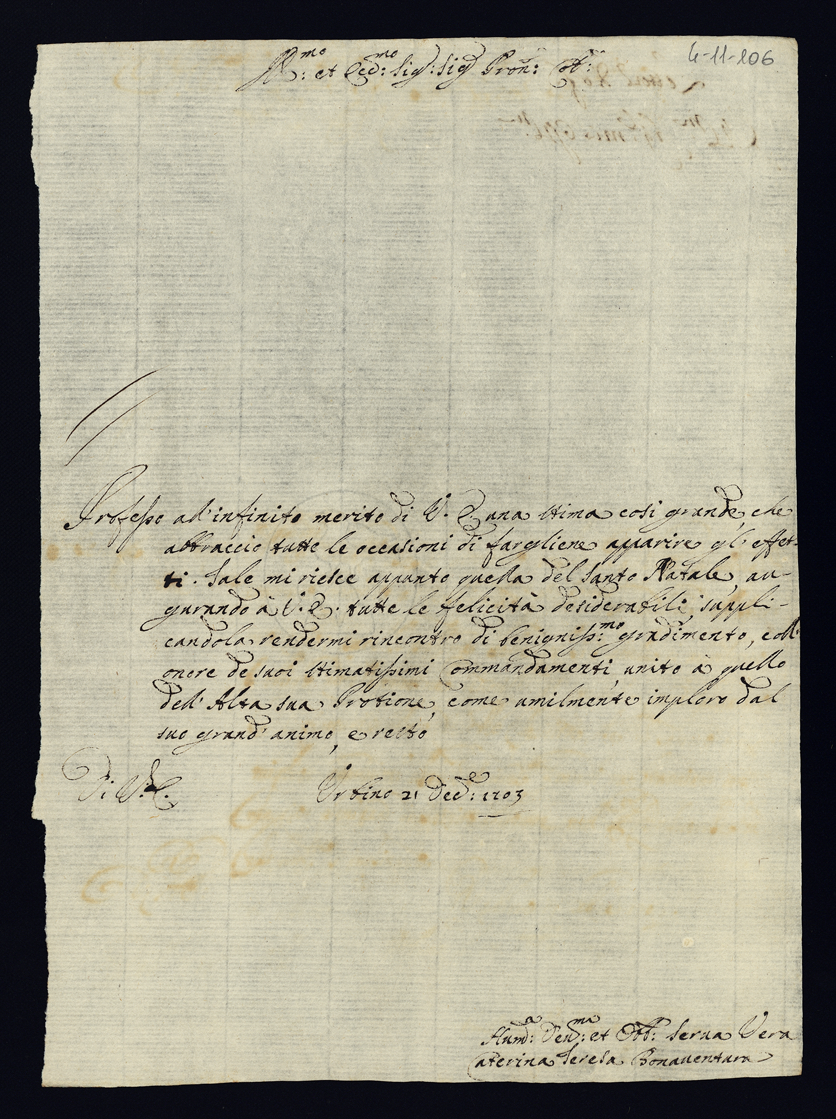 4-11-106
R:mo et Ecc:mo Sig: Sig Pron: Col:
Professo all'infinito merito di V. E. una stima così grande che
abbraccio tutte le occasioni di fargliene apparire gl'effet-
ti. Tale mi riesce appunto quella del Santo Natale, au-
gurando à V. E. tutte le felicità desiderabili, suppli-
candola rendermi rincontro di benigniss:mo gradimento, coll'
onore de suoi stimatissimi Commandamenti, unito à quello
dell'Alta sua Protione, come umilmente imploro dal
suo grand'animo, e resto
Di V. E.
Urbino 21 Dec:e 1703
Hum:a Deu:ma et Obb: Serua Vera
Caterina Teresa Bonauentura